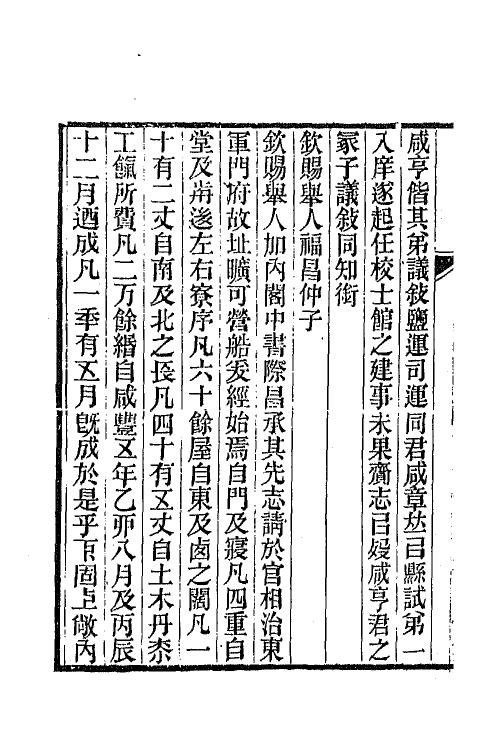 咸亨偕其弟議敍鹽運司運同君咸章𠀤㠯縣試弟一
入庠遂起任校士館之建事未果齎志㠯歿咸亨君之
冢子議敍同知銜
欽賜舉人福昌仲子
欽賜舉人加內閣中書際昌承其先志請於官相治東
軍門府故址曠可營船爰經始焉自門及寢凡四重自
堂及㫄遂左右寮序凡六十餘屋自東及卤之闊凡一
十有二丈自南及北之長凡四十有㐅丈自土木丹桼
工甎所費凡二万餘緡自咸豐㐅年乙丣八月及丙辰
十二月迺成凡一季有㐅月旣成於是乎下固上敞內